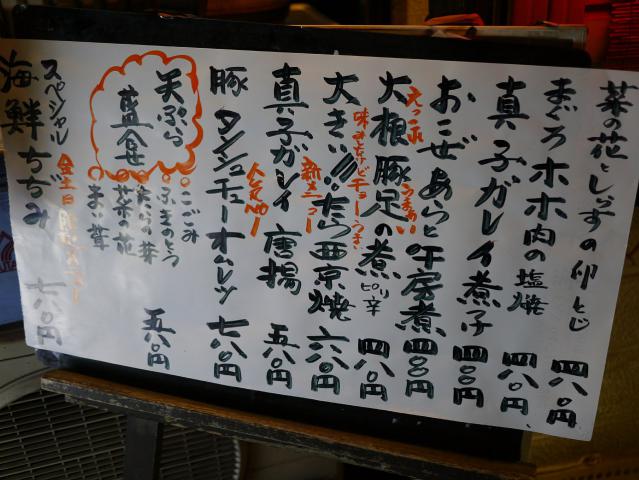 菜の花としらすの卵とじ 四八〇円
まぐろホホ肉の塩焼 四八〇円
真子ガレイ煮 四八〇円
おこぜあらと牛房煮 四八〇円
大根豚足の煮 ピリ辛 四八〇円
大きい!!!たら西京焼 六八〇円
新メニュー
真子ガレイ唐揚 五八〇円
人気No1
豚タンシチューオムレツ 七八〇円
天ぷら
盛合せ
こごみ
ふきのとう
たらの芽
菜の花
まい茸
五八〇円
スペシャル
海鮮ちぢみ 七八〇円
金土日